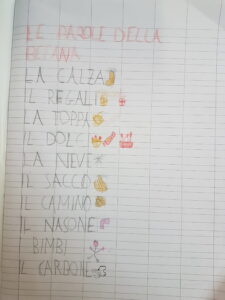 LE PAROLE DELLA
BEFANA
LA CALZA
IL REGALI
LA TOPPA
IL DOLCI
LA NEVE
IL SACCO
IL CAMINO
IL NASONE
BIMBI
IL CARBONE